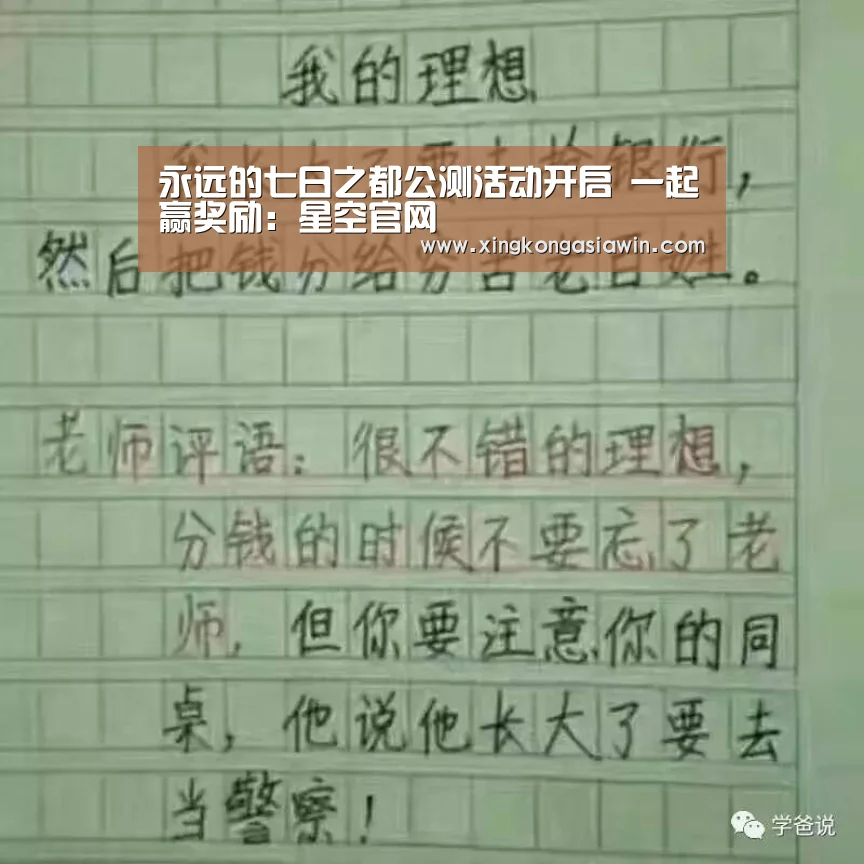 我的理想
永远的七日之都公测活动开启 一起
赢奖励：星空官网
www.xingkongasiawin.com
抢银行，
然后把钱分给穷苦老百姓。
老师评语：很不错的理想，
分钱的时候不要忘了老
师，但你要注意你的同
桌，他说他长大了要去
当警察！
学爸说